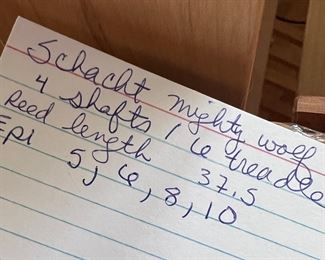 Schacht mighty wolf
4 shafts, 6 treadle
Reed length 37.5
Epi 5, 6, 8, 10